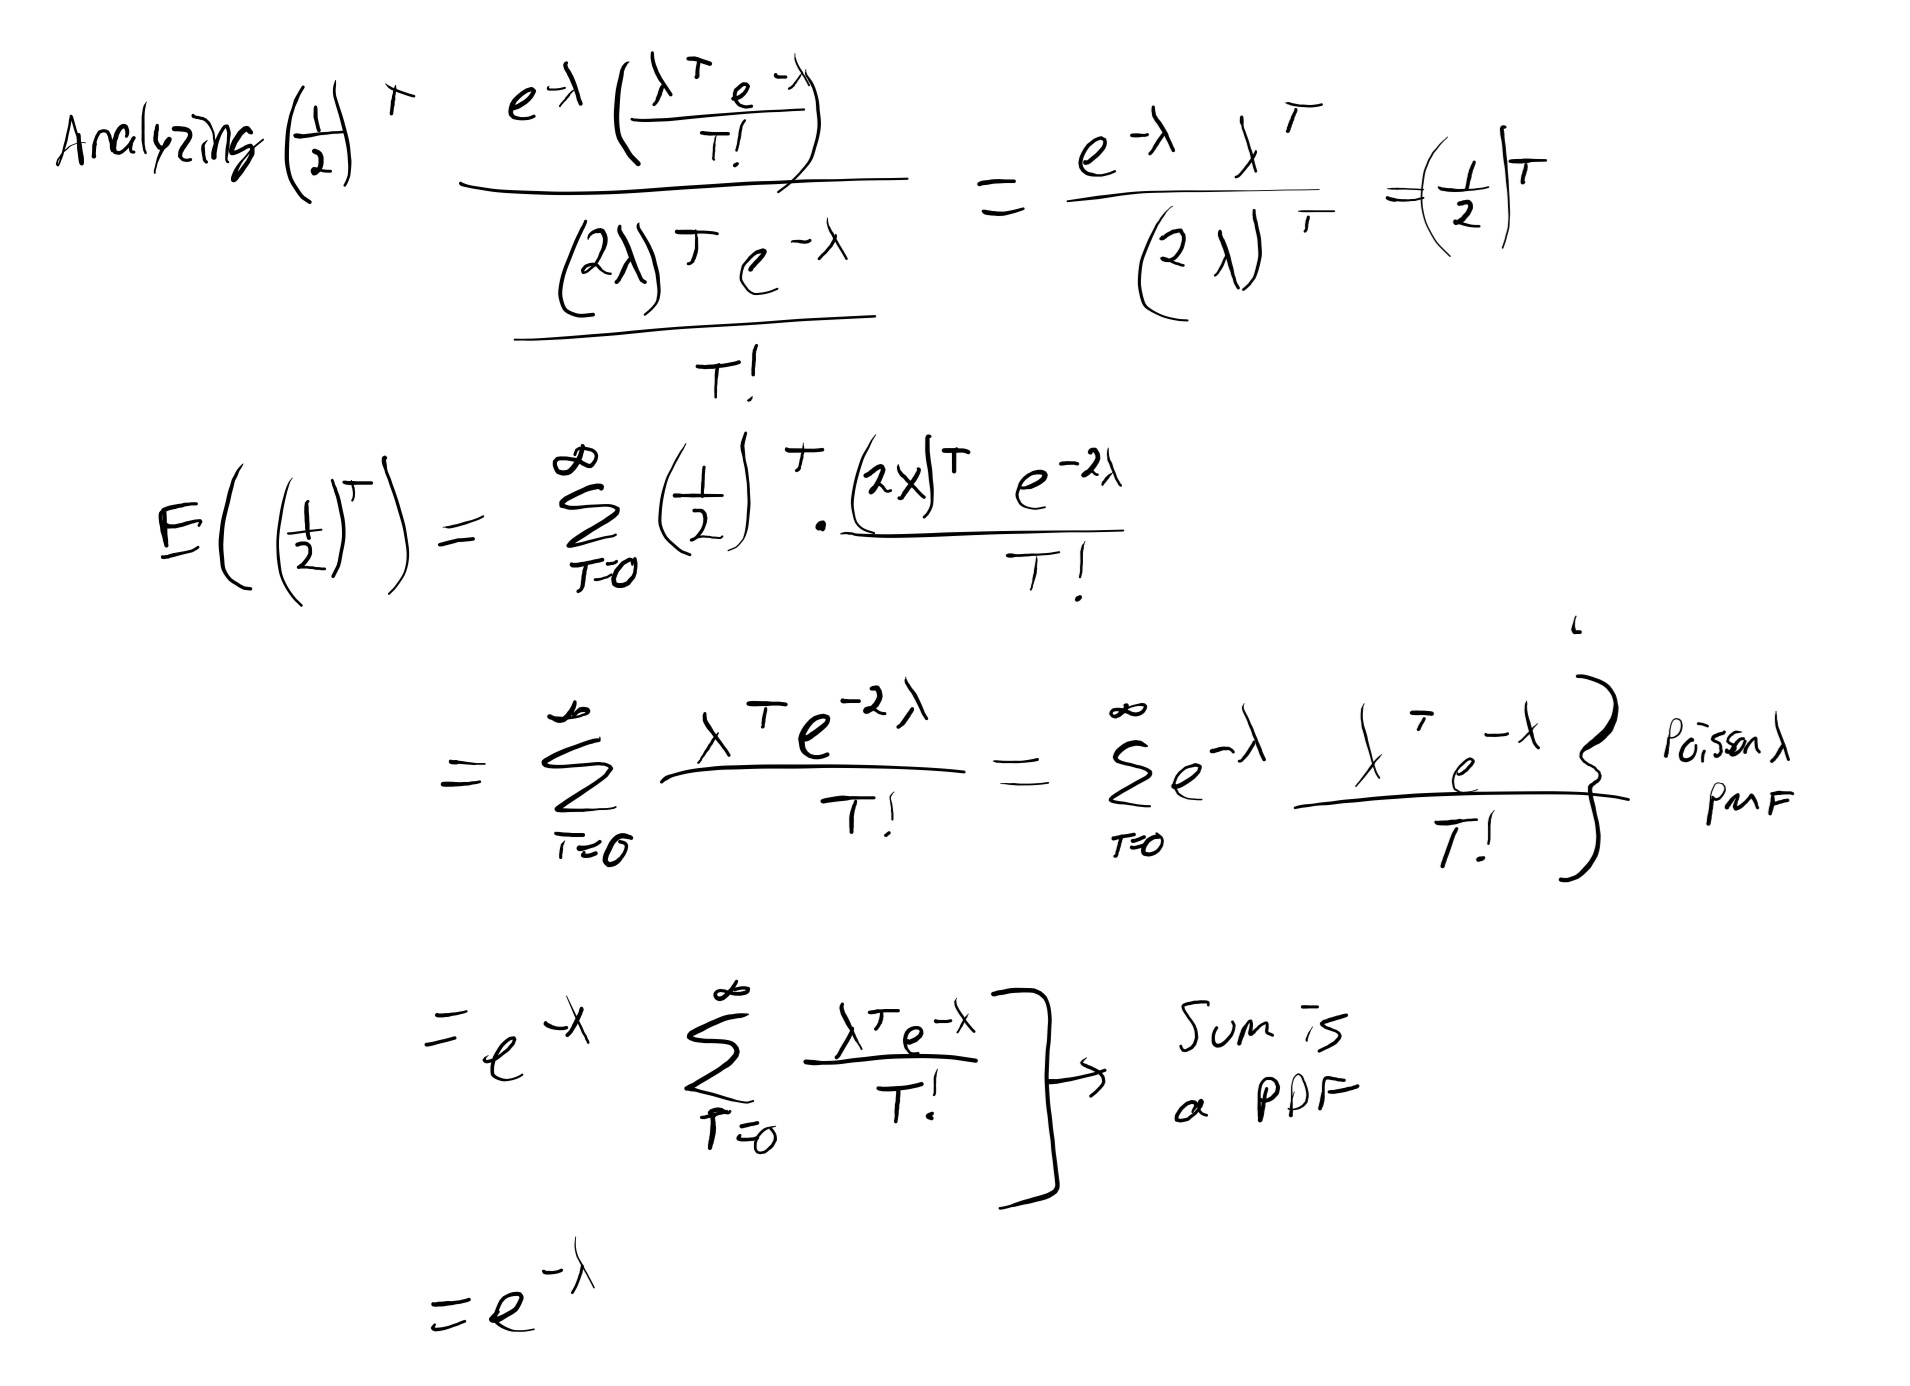 Analyzing (1/2)^T (e^{-λ} (λ^T e^{-λ} / T!)) / ((2λ)^T e^{-λ} / T!) = e^{-λ} λ^T / (2λ)^T = (1/2)^T
E((1/2)^T) = ∑_{T=0}^{∞} (1/2)^T · (2λ)^T e^{-2λ} / T!
= ∑_{T=0}^{∞} λ^T e^{-2λ} / T! = ∑_{T=0}^{∞} e^{-λ} λ^T e^{-λ} / T! } Poisson λ PMF
= e^{-λ} ∑_{T=0}^{∞} λ^T e^{-λ} / T! ] → Sum is a PDF
= e^{-λ}